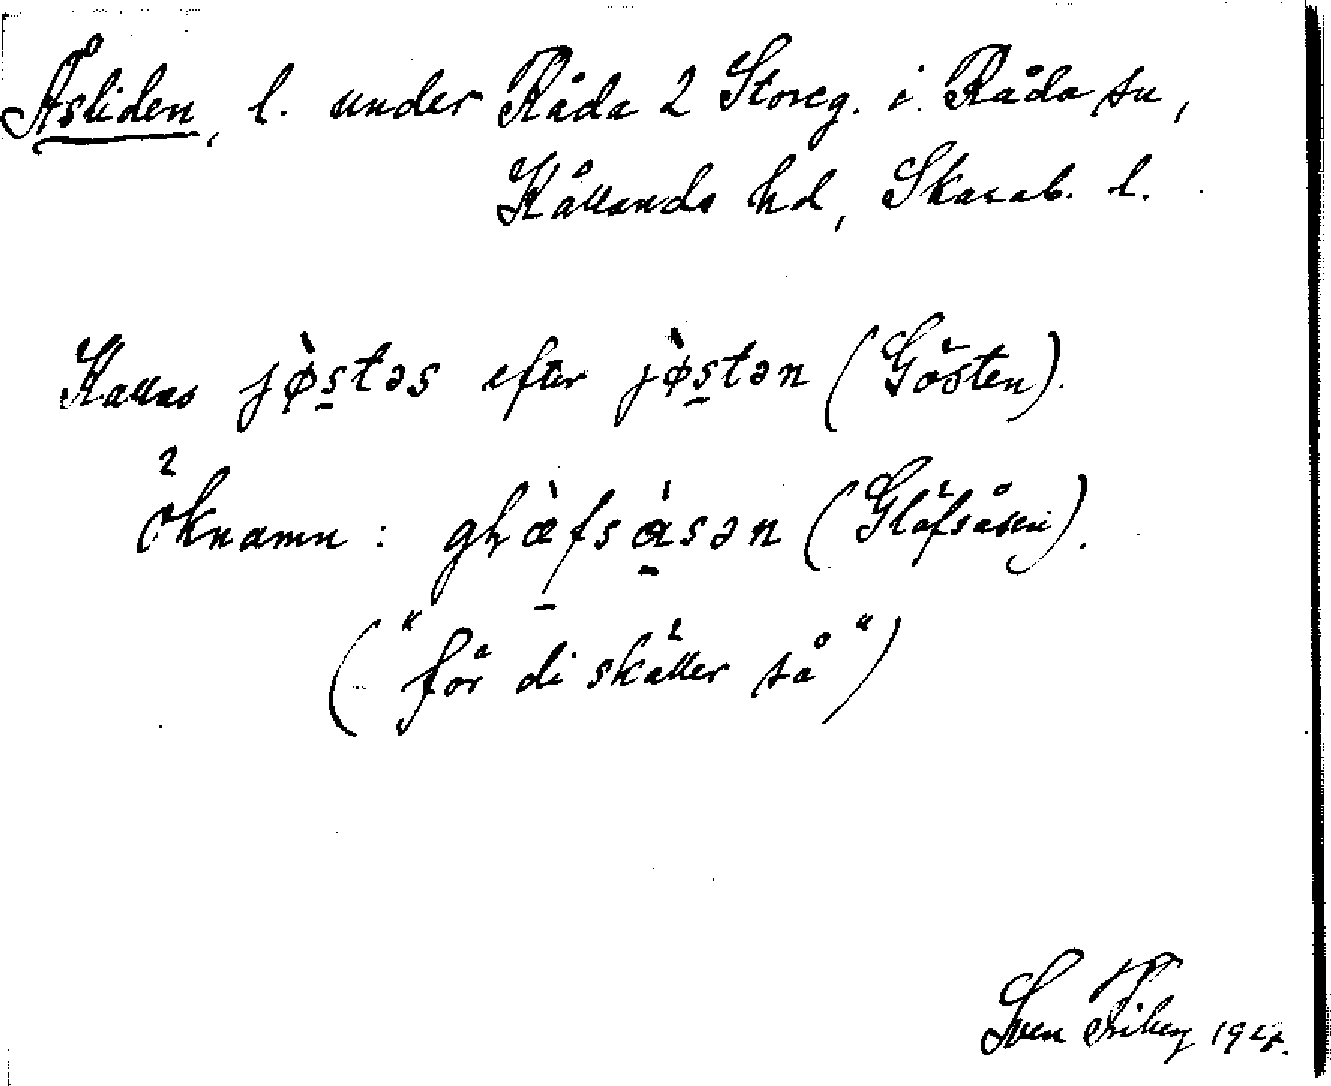 Åsliden, l. under Råda 2 Storeg. i Råda sn,
Kållands hd, Skarab. l.
Kallas jø̀s̱təs efter jø̀s̱tən (Gösten).
Öknamn: gɫæ̀fsɑ̀sən (Gläfsåsen).
("för di skäller så")
Sven Friberg